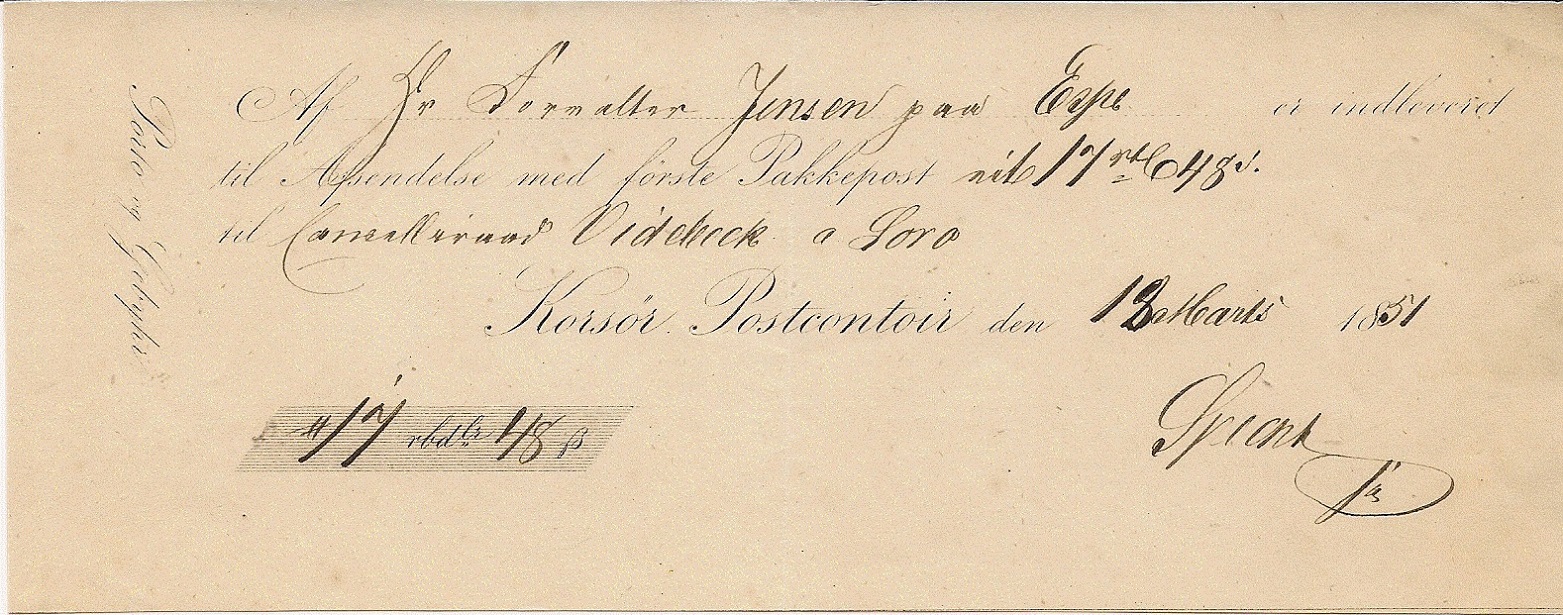 Porto og Gebyhr
Af Hr Forvalter Jensen paa Espe er indleveret
til Afsendelse med förste Pakkepost 17 rbd 48 s.
til Cancelliraad Videbeck a Sorø
Korsör Postcontoir den Marts 1851
17 rbdlr 48 β